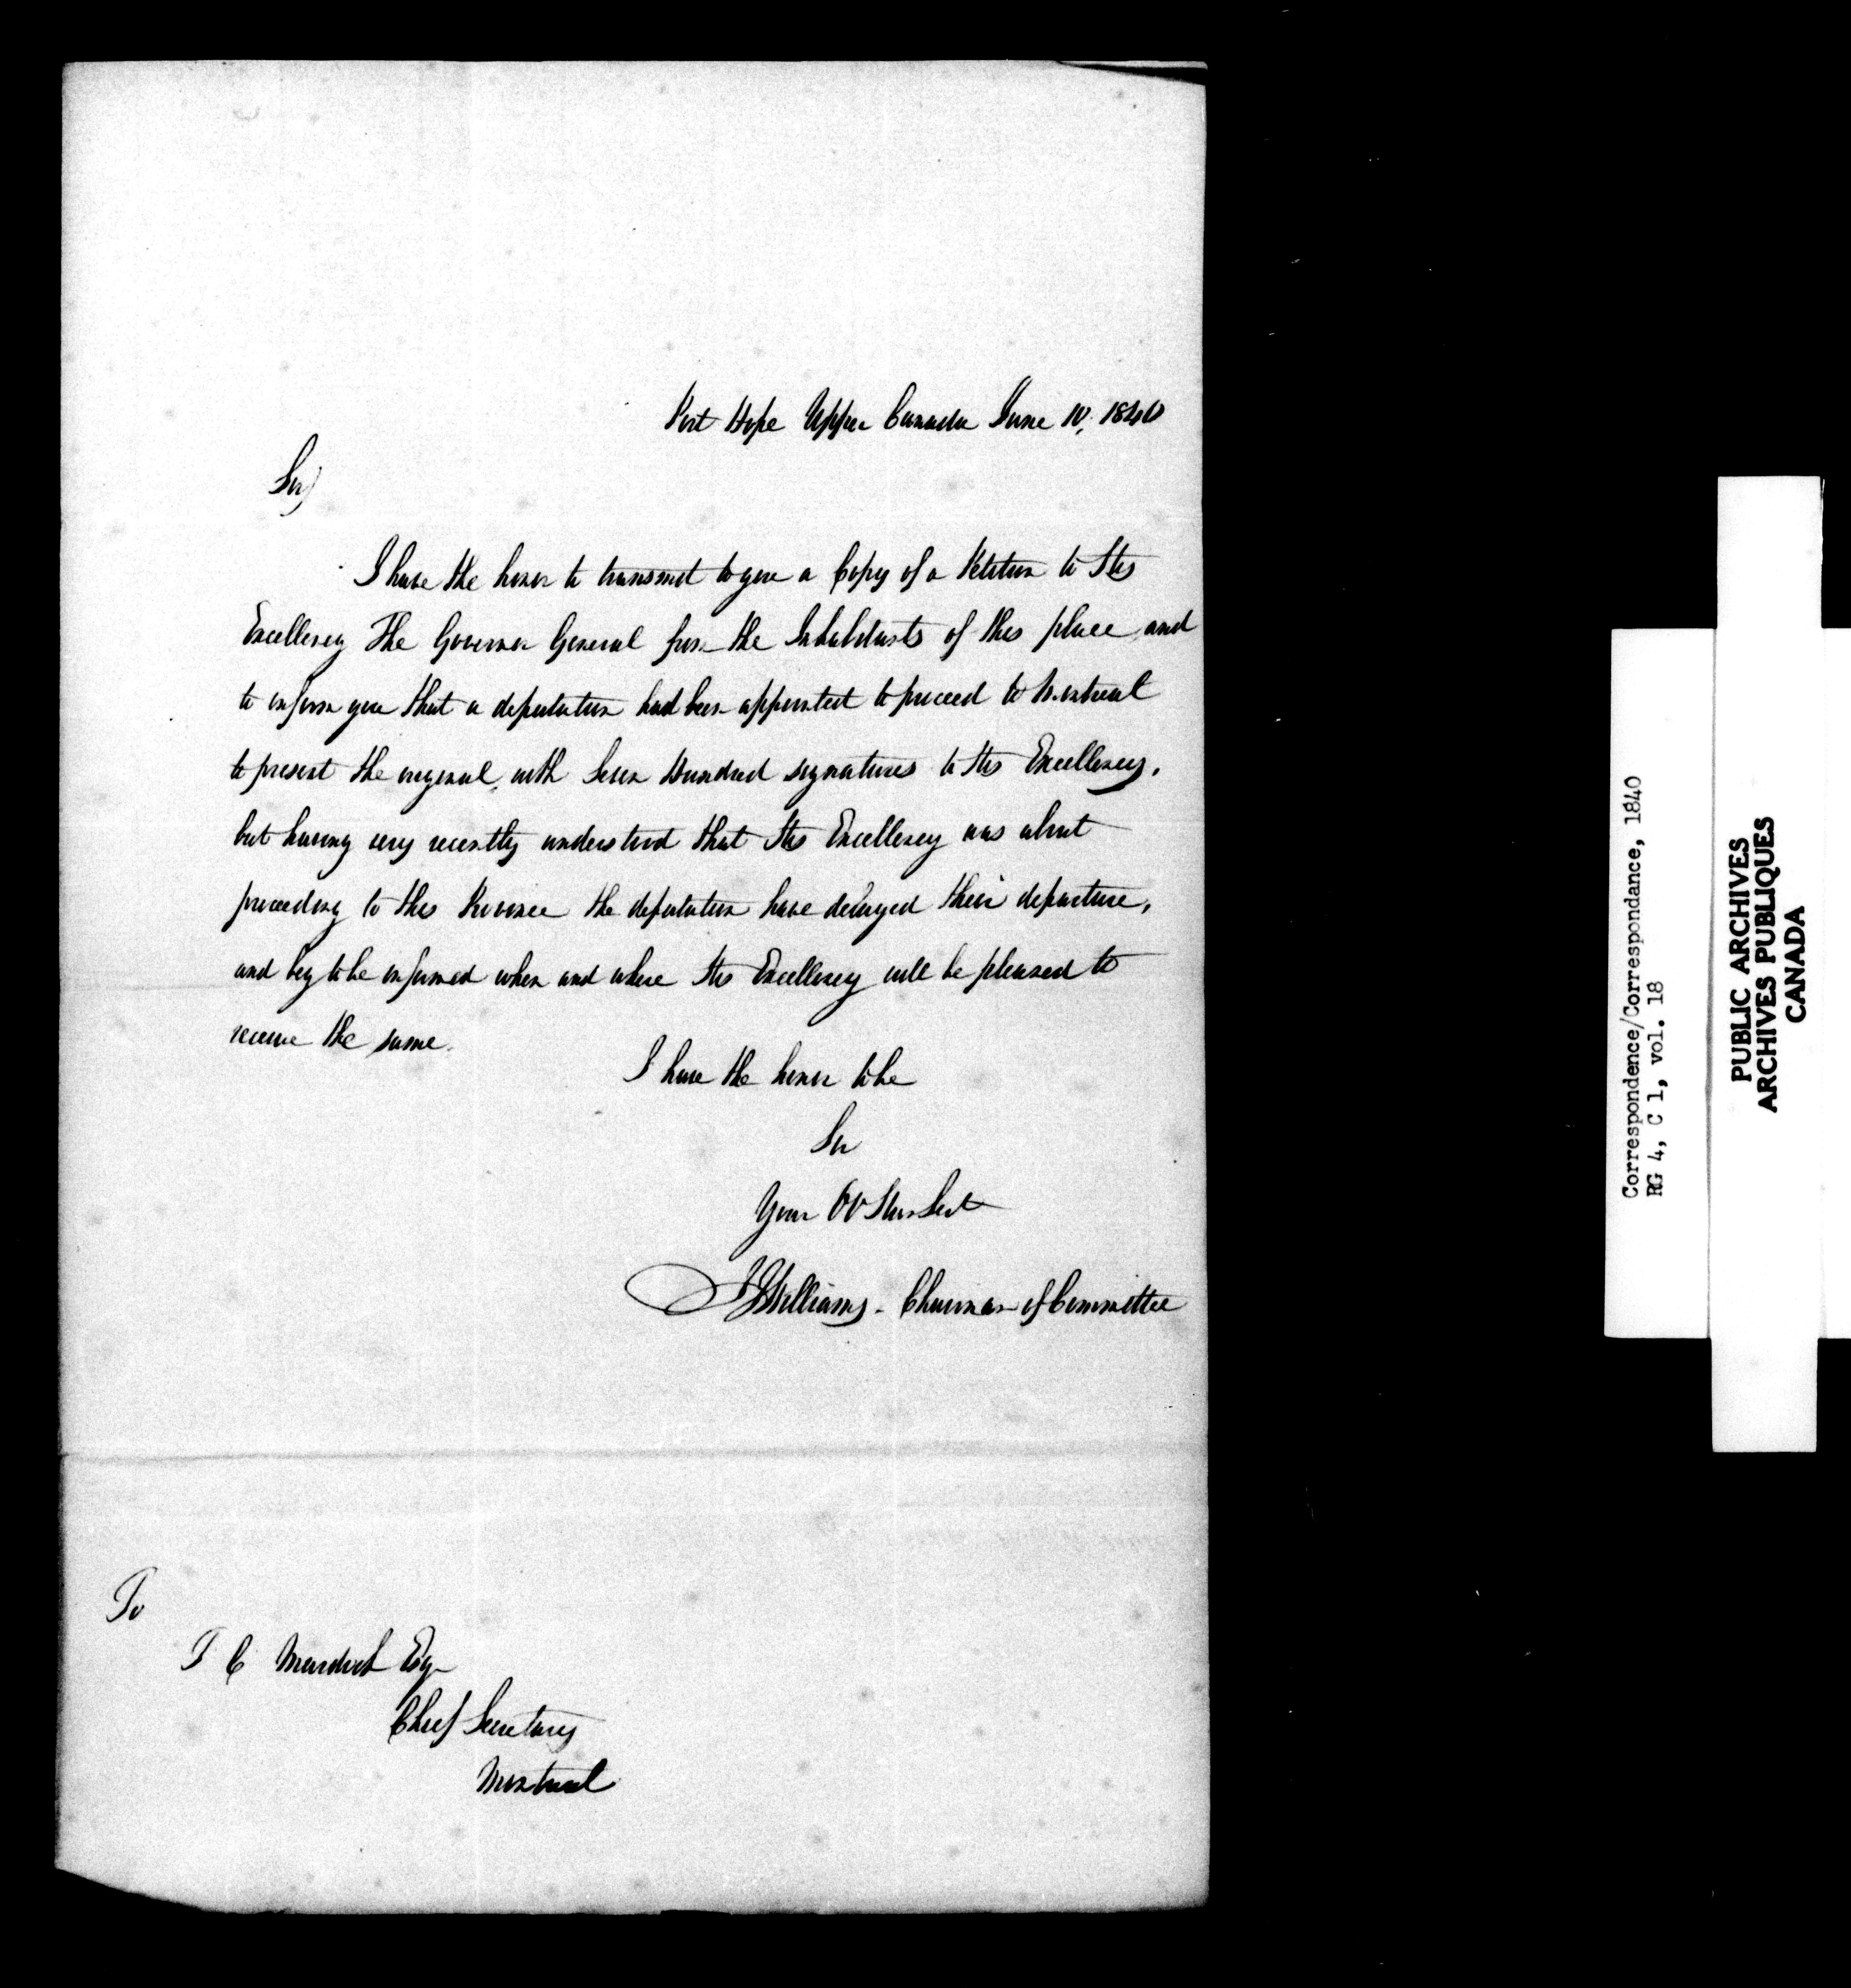 Port Hope Upper Canada June 10, 1840
Sir,
I have the honor to transmit to you a Copy of a Petition to His
Excellency The Governor General from the Inhabitants of this place and
to inform you that a deputation had been appointed to proceed to Montreal
to present the original, with Seven Hundred signatures to His Excellency,
but having very recently understood that His Excellency was about
proceeding to this Province the deputation have delayed their departure,
and beg to be informed when and where His Excellency will be pleased to
receive the same.
I have the honor to be
Sir
Your Ob Hum Sert
Williams - Chairman of Committee
To
T C Murdoch Esqr
Chief Secretary
Montreal
Correspondence/Correspondance, 1840
RG 4, C 1, vol. 18
PUBLIC ARCHIVES
ARCHIVES PUBLIQUES
CANADA